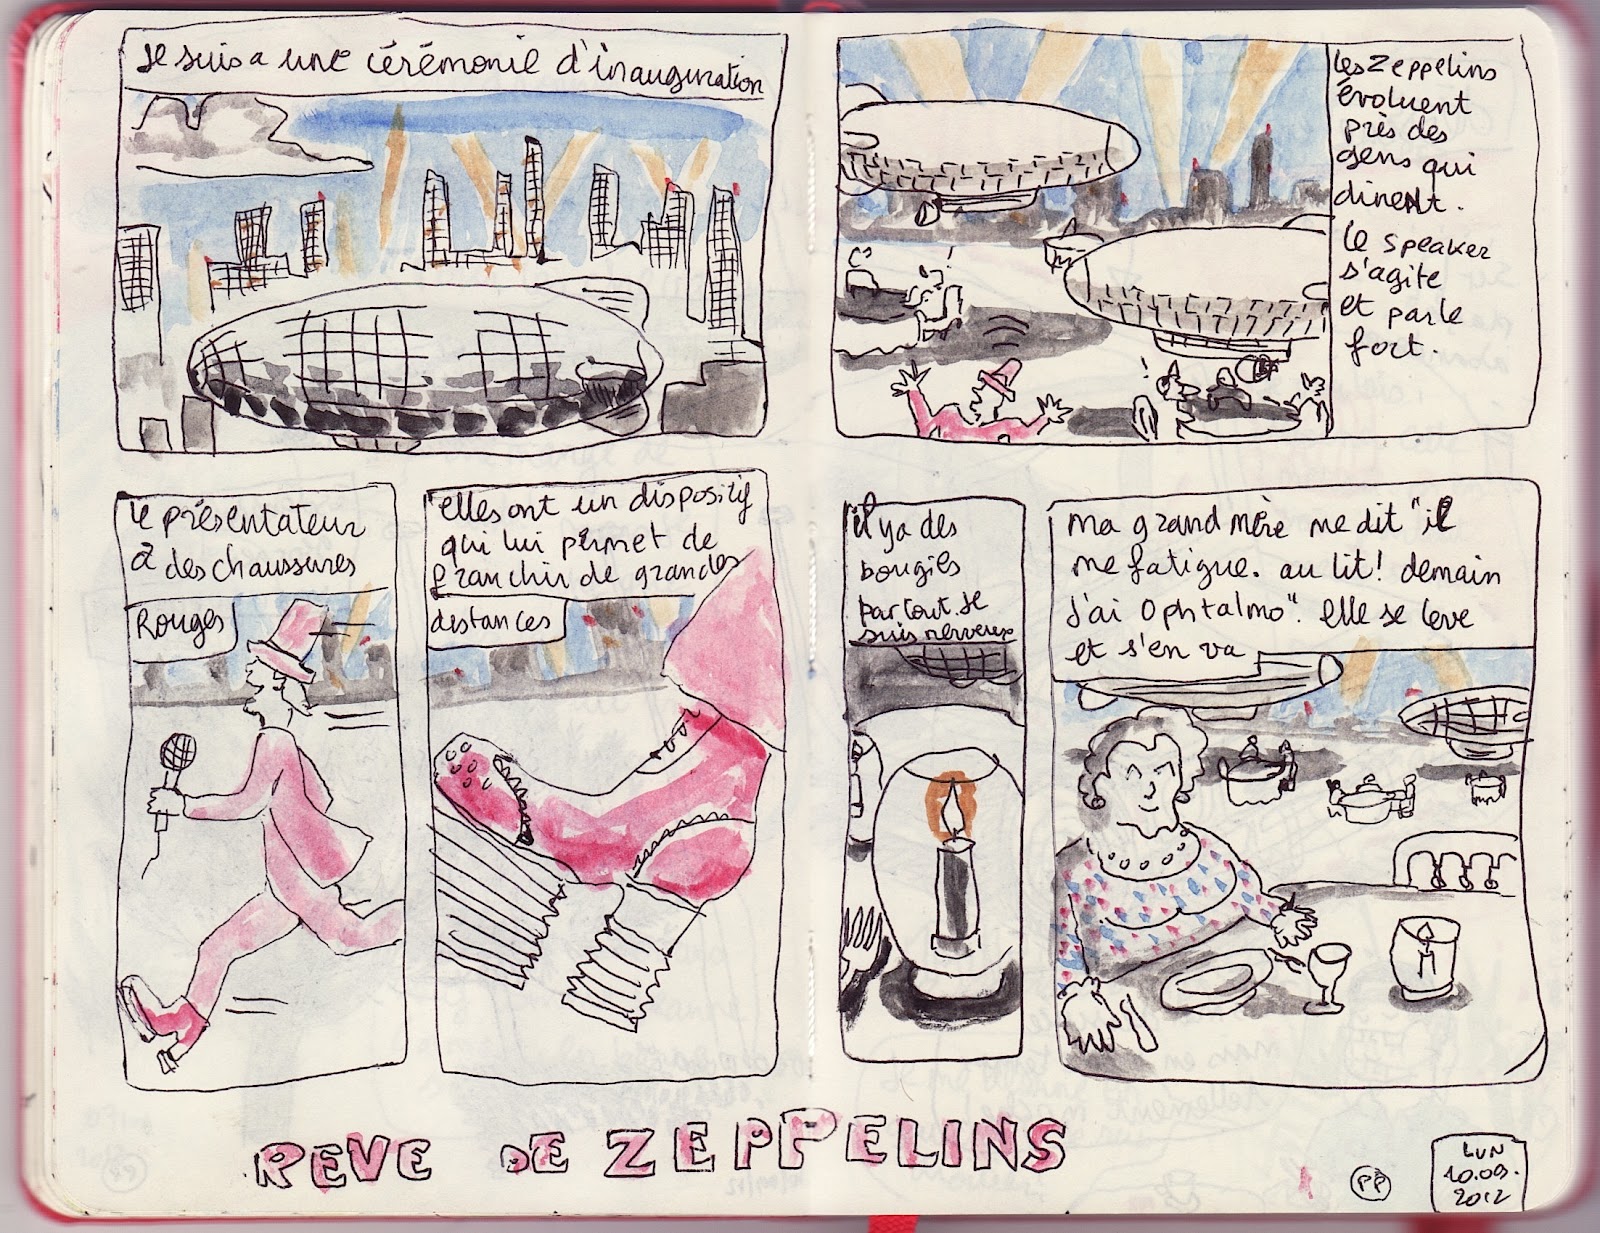 Je suis a une cérémonie d'inauguration
les zeppelins
évoluent
près des
gens qui
dinent.
le speaker
s'agite
et parle
fort.
le présentateur
a des chaussures
Rouges
elles ont un dispositif
qui lui permet de
franchir de grandes
distances
il y a des
bougies
partout. Je
suis nerveux
ma grand mère me dit "il
me fatigue. au lit! demain
j'ai Ophtalmo". elle se leve
et s'en va
REVE DE ZEPPELINS
PP
LUN
10.09.
2012